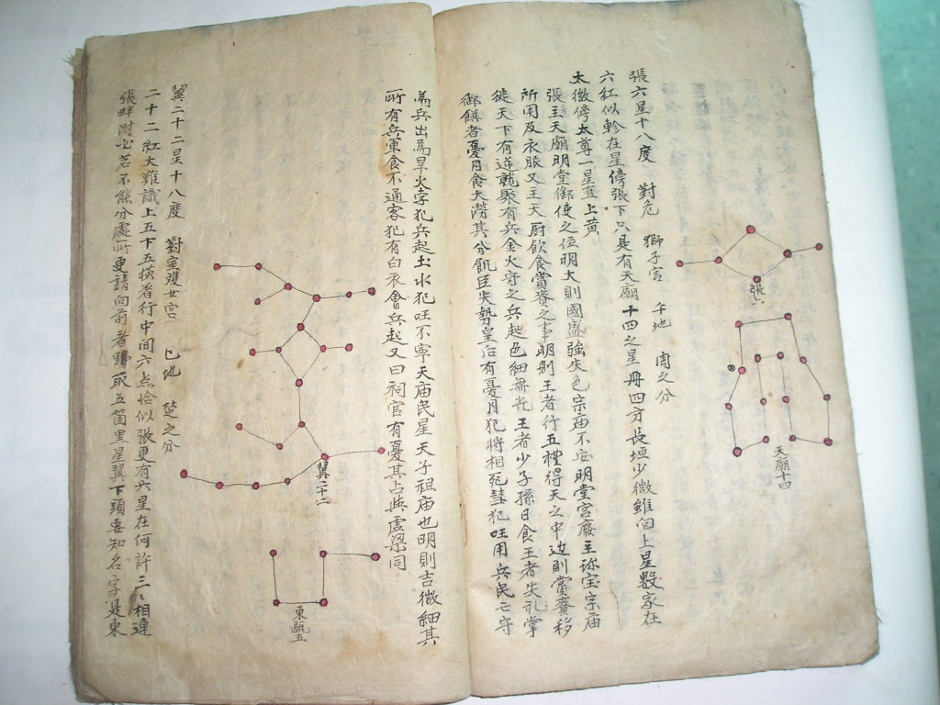 張六
天廟十四
張六星十八度 對危 獅子宮 午地 周之分
六紅似軫在星傍張下只是有天廟十四之星冊四方長垣少微雖向上星數家在
太微傍太尊一星直上黃
張主天廟明堂御使之位明大則國盛強失色宗庙不安明堂宮廢主珎宝宗庙
所用及衣服又主天厨飲食賞賚之事明則王者行五禮得天之中边則賞賚移
徙天下有逆就聚有兵金火守之兵起色細無光王者少子孫日食王者失礼掌
御饌者憂月食大澇其分飢臣失勢皇后有憂月犯將相死彗犯旺用兵民亡守
為兵出為旱火孛犯兵起土水犯旺不寧天庙民星天子祖庙也明則吉微細其
所有兵軍食不通客犯有白衣會兵起又曰祠官有憂其占與虛梁同
翼二十二
東甌五
翼二十二星十八度 對室雙女宮 巳地 楚之分
二十二紅大難識上五下五橫着行中間六点恰似張更有六星在何許三〻相連
張畔附必若不能分處所更請向前看野取五箇黑星翼下頭要知名字是東